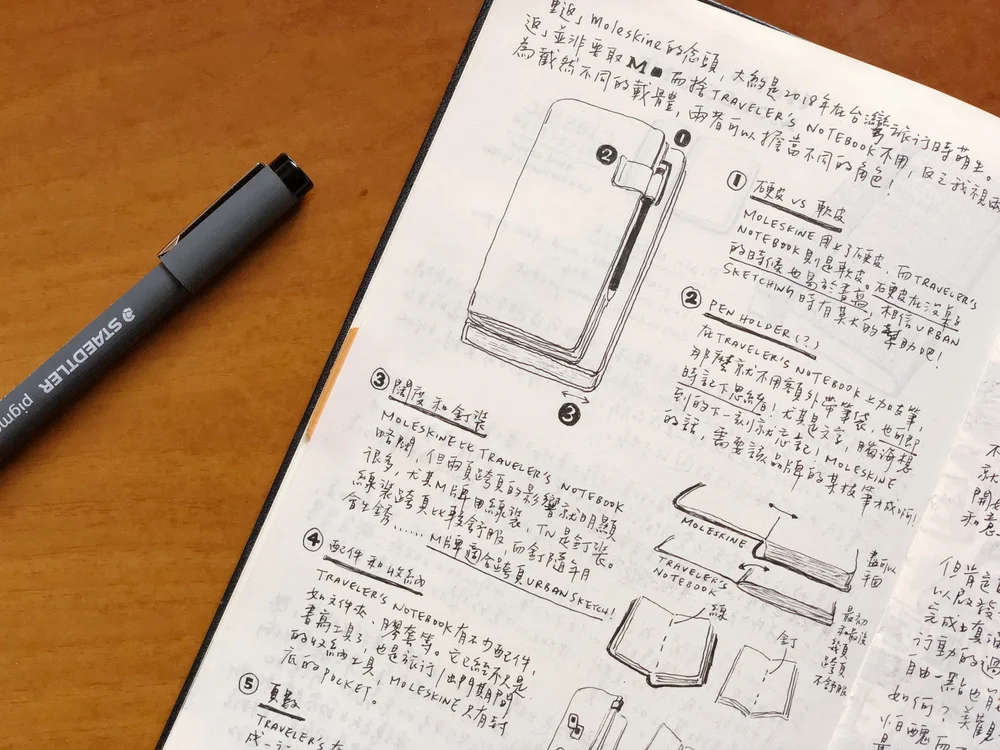 返」Moleskine的念頭，大約是2018年在台灣旅行時萌生。
返」並非要取M■而捨TRAVELER'S NOTEBOOK不用，反之我視兩
為截然不同的載體，兩者可以擔當不同的角色！
①
②
③
① 硬皮 vs 軟皮
MOLESKINE用上了硬皮，而TRAVELER'S
NOTEBOOK則是軟皮。硬皮在沒桌子
的時候也易於書寫，相信URBAN
SKETCHING時有莫大的幫助吧！
② PEN HOLDER(?)
在TRAVELER'S NOTEBOOK上加支筆，
那麼就不用額外帶筆袋，也可即
時記下思緒！尤其是文字，腦海想
到的下一刻就忘記！MOLESKINE
的話，需要該品牌的某枝筆才成啊！
③ 開度和釘裝
MOLESKINE比TRAVELER'S NOTEBOOK
略闊，但兩頁跨頁的影響就明顯
很多，尤其M牌用線裝，TN是釘裝。
線裝跨頁比較舒服，而釘隨年月
會生銹......M牌適合跨頁URBAN SKETCH！
MOLESKINE
TRAVELER'S
NOTEBOOK
盡可以
平面
線
釘
最初
和最後
幾頁
跨頁
不舒服
④ 配件和收納
TRAVELER'S NOTEBOOK有不少配件，
如文件夾、膠套等。它已經不只是
書寫工具了，也是旅行/出門期間
的收納工具！MOLESKINE只有封
底的POCKET！
⑤ 頁數
TRAVELER'S
不
就
開始
和意
但肯
以啟發
完成
行動的過
自由一點也
如何？美觀
怕醜而
STAEDTLER
pigm